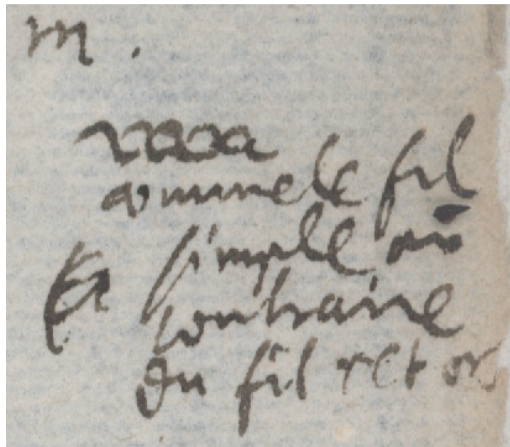 m.
comme le fil
simple au
Et contraire
du fil retors